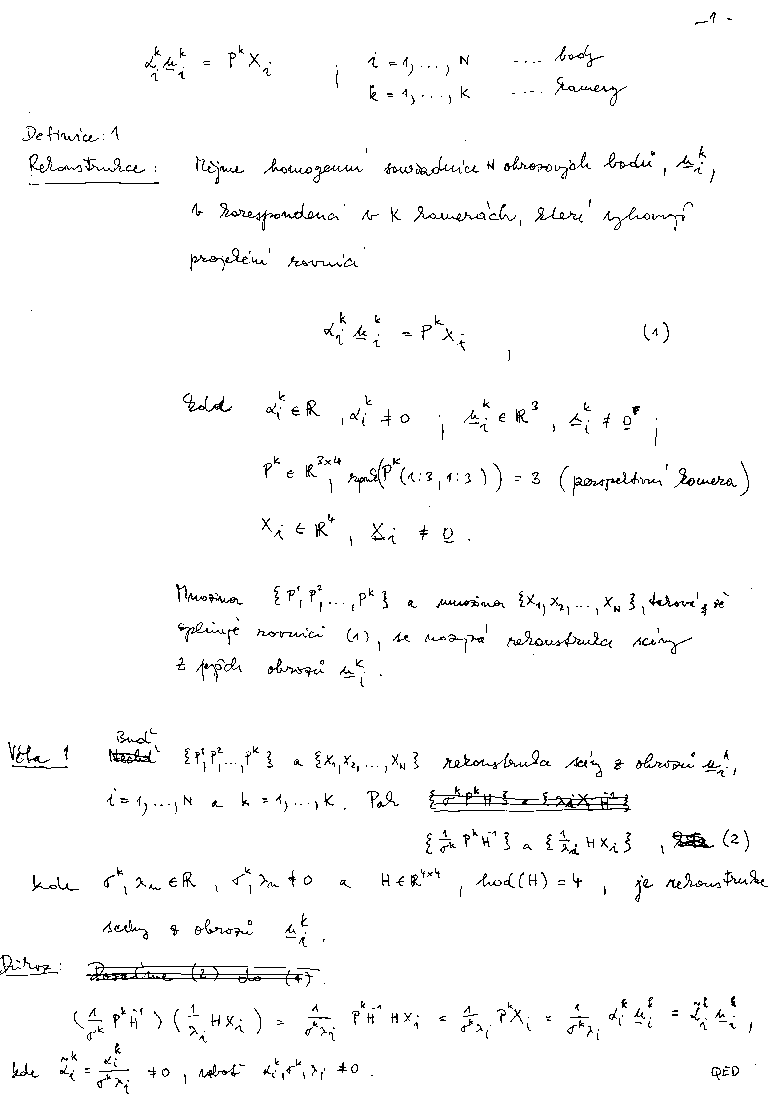 - 1 -
α_i^k u_i^k = P^k X_i , i = 1, ..., N .... body
k = 1, ..., K .... kamery
Definice: 1
Rekonstrukce: Mějme homogenní souřadnice N obrazových bodů, u_i^k,
v korespondenci v K kamerách, které vyhovují
projekční rovnici
α_i^k u_i^k = P^k X_i , (1)
kde α_i^k ∈ R, α_i^k ≠ 0 ; u_i^k ∈ R^3, u_i^k ≠ 0 ;
P^k ∈ R^{3×4}, rank(P^k(1:3, 1:3)) = 3 (perspektivní kamera)
X_i ∈ R^4, X_i ≠ 0.
Množina {P^1, P^2, ..., P^k} a množina {X_1, X_2, ..., X_N}, taková, že
splňují rovnici (1), se nazývá rekonstrukcí scény
z jejích obrazů u_i^k.
Věta 1 Buď {P^1, P^2, ..., P^k} a {X_1, X_2, ..., X_N} rekonstrukcí scény z obrazů u_i^k,
i = 1, ..., N a k = 1, ..., K. Pak {σ^k P^k H} a {λ_i X_i H^-1}
{1/σ^k P^k H^-1} a {1/λ_i H X_i}, (2)
kde σ^k, λ_n ∈ R, σ^k, λ_n ≠ 0 a H ∈ R^{4×4}, hod(H) = 4, je rekonstrukce
scény z obrazů u_i^k.
Důkaz: Dosadíme (2) do (1)
(1/σ^k P^k H^-1) (1/λ_i H X_i) = 1/(σ^k λ_i) P^k H^-1 H X_i = 1/(σ^k λ_i) P^k X_i = 1/(σ^k λ_i) α_i^k u_i^k = α̃_i^k u_i^k,
kde α̃_i^k = α_i^k/(σ^k λ_i) ≠ 0, neboť α_i^k, σ^k, λ_i ≠ 0. QED